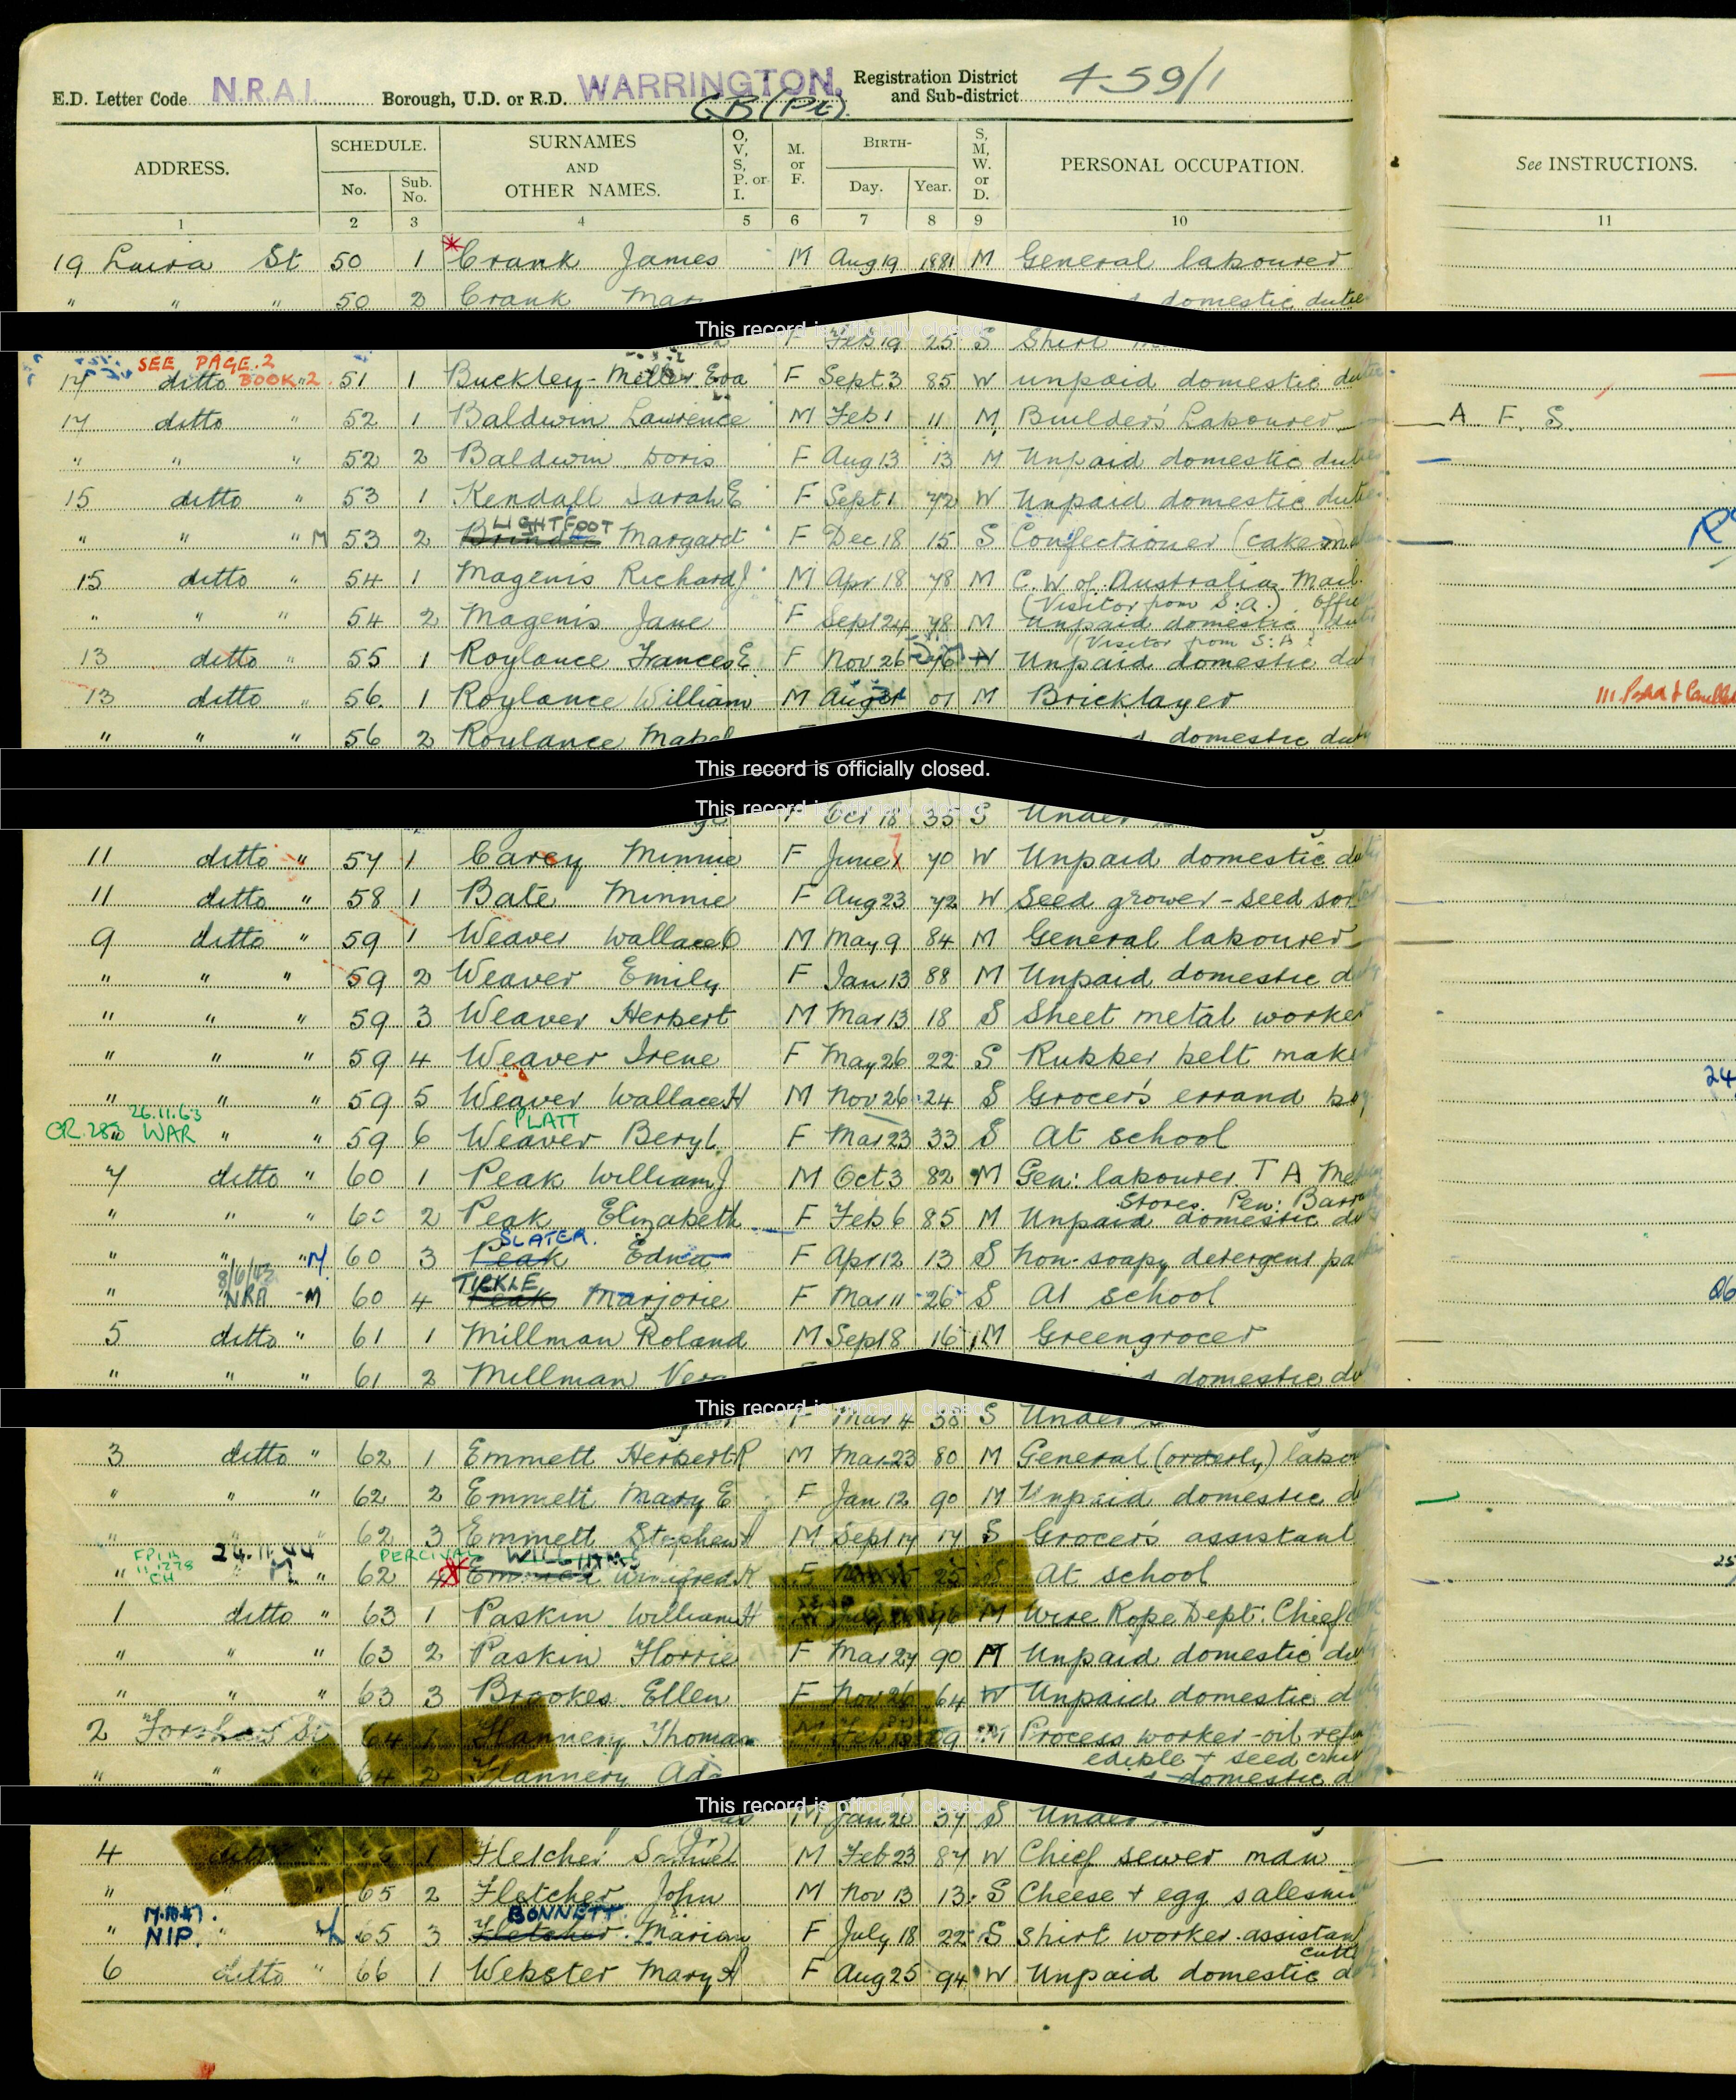 E.D. Letter Code N.R.A.I. Borough, U.D. or R.D. WARRINGTON. C.B (Pt). Registration District and Sub-district 459/1
ADDRESS. SCHEDULE. No. Sub. No. SURNAMES AND OTHER NAMES. O, V, S, P. or I. M. or F. BIRTH- Day. Year. S, M, W. or D. PERSONAL OCCUPATION. See INSTRUCTIONS.
1 2 3 4 5 6 7 8 9 10 11
19 Laira St 50 1 Crank James M Aug 19 1881 M General labourer
" " " 50 2 Crank domestic
This record is officially closed.
F Feb 19 25 S Shirt
SEE PAGE 2 BOOK 2
17 ditto " 51 1 Buckley-Mellor Eva F Sept 3 85 W unpaid domestic
17 ditto " 52 1 Baldwin Lawrence M Feb 1 11 M Builder's Labourer A. F. S.
" " " 52 2 Baldwin Doris F Aug 13 13 M Unpaid domestic
15 ditto " 53 1 Kendall Sarah E F Sept 1 72 W Unpaid domestic
LIGHTFOOT
" " " M 53 2 Margaret F Dec 18 15 S Confectioner (cake
15 ditto " 54 1 Magenis Richard J M Apr 18 78 M C.W. of Australia Mail
(Visitor from S.A.)
" " " 54 2 Magenis Jane F Sept 24 78 M Unpaid domestic
(Visitor from S.A.
13 ditto " 55 1 Roylance Frances E F Nov 26 W Unpaid domestic
13 ditto " 56 1 Roylance William M Aug 01 M Bricklayer
" " " 56 2 Roylance Mabel domestic
This record is officially closed.
This record is officially closed.
F Oct 18 35 S Under
11 ditto " 57 1 Carey Minnie F June 70 W Unpaid domestic
11 ditto " 58 1 Bate Minnie F Aug 23 72 W Seed grower - seed
9 ditto " 59 1 Weaver Wallace O M May 9 84 M General labourer
" " " 59 2 Weaver Emily F Jan 13 88 M Unpaid domestic
" " " 59 3 Weaver Herbert M Mar 13 18 S Sheet metal worker
" " " 59 4 Weaver Irene F May 26 22 S Rubber belt
" " " 59 5 Weaver Wallace H M Nov 26 24 S Grocer's errand boy
26.11.63 PLATT
WAR " " 59 6 Weaver Beryl F Mar 23 33 S At school
7 ditto " 60 1 Peak William J M Oct 3 82 M Gen: labourer T A
Stores. Pen:
" " " 60 2 Peak Elizabeth F Feb 6 85 M Unpaid domestic
SLATER.
" " " M 60 3 Peak Edna F Apr 12 13 S Non-soapy detergent
8/6/42 TICKLE
" NRA M 60 4 Peak Marjorie F Mar 11 26 S At school
5 ditto " 61 1 Millman Roland M Sept 8 16 M Greengrocer
" " " 61 2 Millman domestic
This record is officially closed.
F Mar 4 38 S Under
3 ditto " 62 1 Emmett Herbert R M Mar 23 80 M General (orderly)
" " " 62 2 Emmett Mary E F Jan 12 90 M Unpaid domestic
" " " 62 3 Emmett Stephen M Sept 17 17 S Grocer's assistant
24.11.44 PERCIVAL WILLIAMS
" " 62 4 Emmett Winifred K F 25 S At school
1 ditto " 63 1 Paskin William H 96 M Wire Rope Dept: Chief
" " " 63 2 Paskin Florrie F Mar 27 90 M Unpaid domestic
" " " 63 3 Brookes Ellen F Nov 26 64 W Unpaid domestic
2 St 64 1 Flannery Thomas M Feb M Process worker - oil
edible + seed
" " 64 2 Flannery Ada domestic
This record is officially closed.
M Jan 20 37 S Under
4 1 Fletcher Samuel M Feb 23 87 W Chief sewer man
" " 65 2 Fletcher John M Nov 13 13 S Cheese + egg
BONNETT.
" NIP. " 65 3 Fletcher Marian F July 18 22 S Shirt worker
6 ditto " 66 1 Webster Mary A F Aug 25 94 W Unpaid domestic